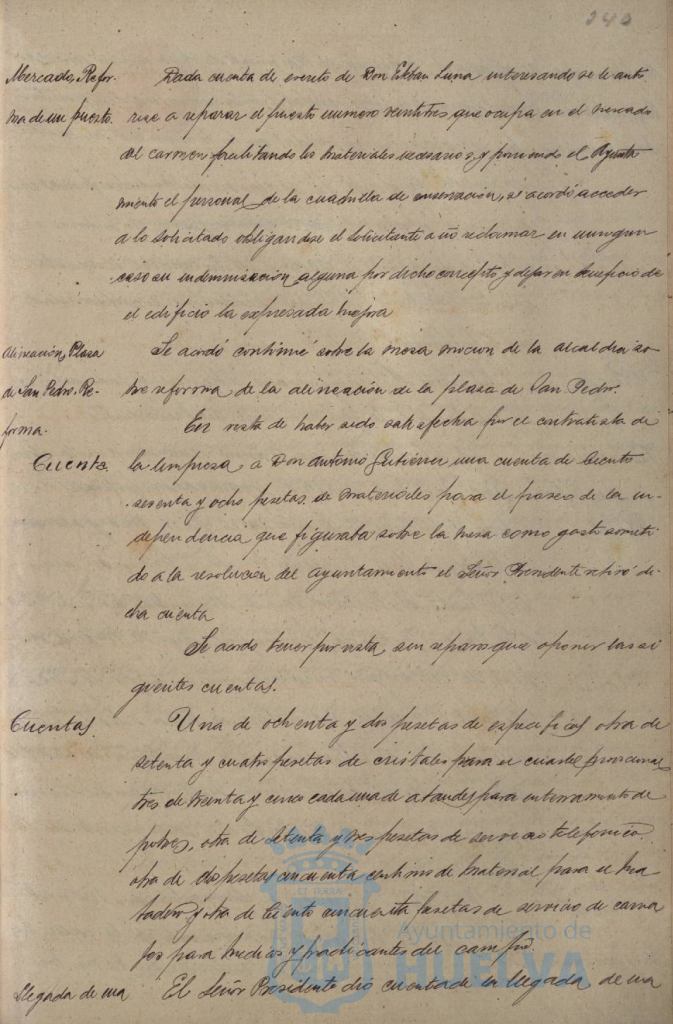 240
Mercado, Refor-
ma de un puesto.
Dada cuenta de escrito de Don Esteban Luna interesando se le auto
rice a reparar el puesto numero veintitres que ocupa en el mercado
del carmen facilitando los materiales necesarios y poniendo el Ayunta
miento el personal de la cuadrilla de conservación, se acordó acceder
a lo solicitado obligandose el solicitante a no reclamar en ningun
caso indemnización alguna por dicho concepto y dejar en beneficio de
el edificio la expresada mejora
Alineación, Plaza
de San Pedro. Re-
forma.
Se acordó continúe sobre la mesa mocion de la alcaldia so-
bre reforma de la alineación de la plaza de San Pedro.
Cuenta
En vista de haber sido satisfecha por el contratista de
la limpieza a Don Antonio Gutierrez una cuenta de ciento
sesenta y ocho pesetas de materiales para el paseo de la in-
dependencia que figuraba sobre la mesa como gasto someti-
do a la resolución del ayuntamiento el Señor Presidente retiró di-
cha cuenta
Se acordo tener por vista, sin reparos que oponer las si
guientes cuentas.
Cuentas.
Una de ochenta y dos pesetas de especificos otra de
setenta y cuatro pesetas de cristales para el cuartel provisional
tres de treinta y cinco cada una de ataudes para enterramiento de
pobres, otra de setenta y tres pesetas de servicio telefonico,
otra de dos pesetas cincuenta centimos de material para el ma
tadero y otra de ciento cincuenta pesetas de servicio de carrua
jes para medicos y practicantes del campo.
Llegada de una
El Señor Presidente dio cuenta de la llegada de una
Ayuntamiento de
HUELVA